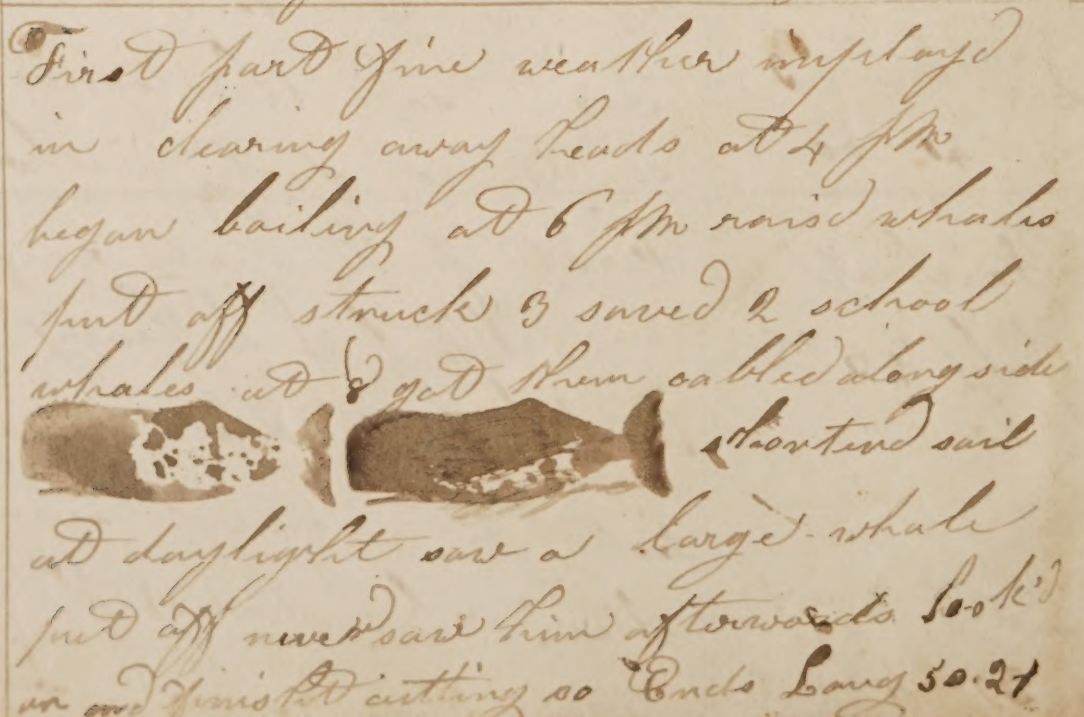 First part fine weather imployd
in clearing away heads at 4 PM
began boiling at 6 PM raisd whales
put off struck 3 saved 2 school
whales at 8 got them along side
shortend sail
at daylight saw a large whale
put off never saw him afterwards look'd
on and finisht cutting so Ends Long 50.21